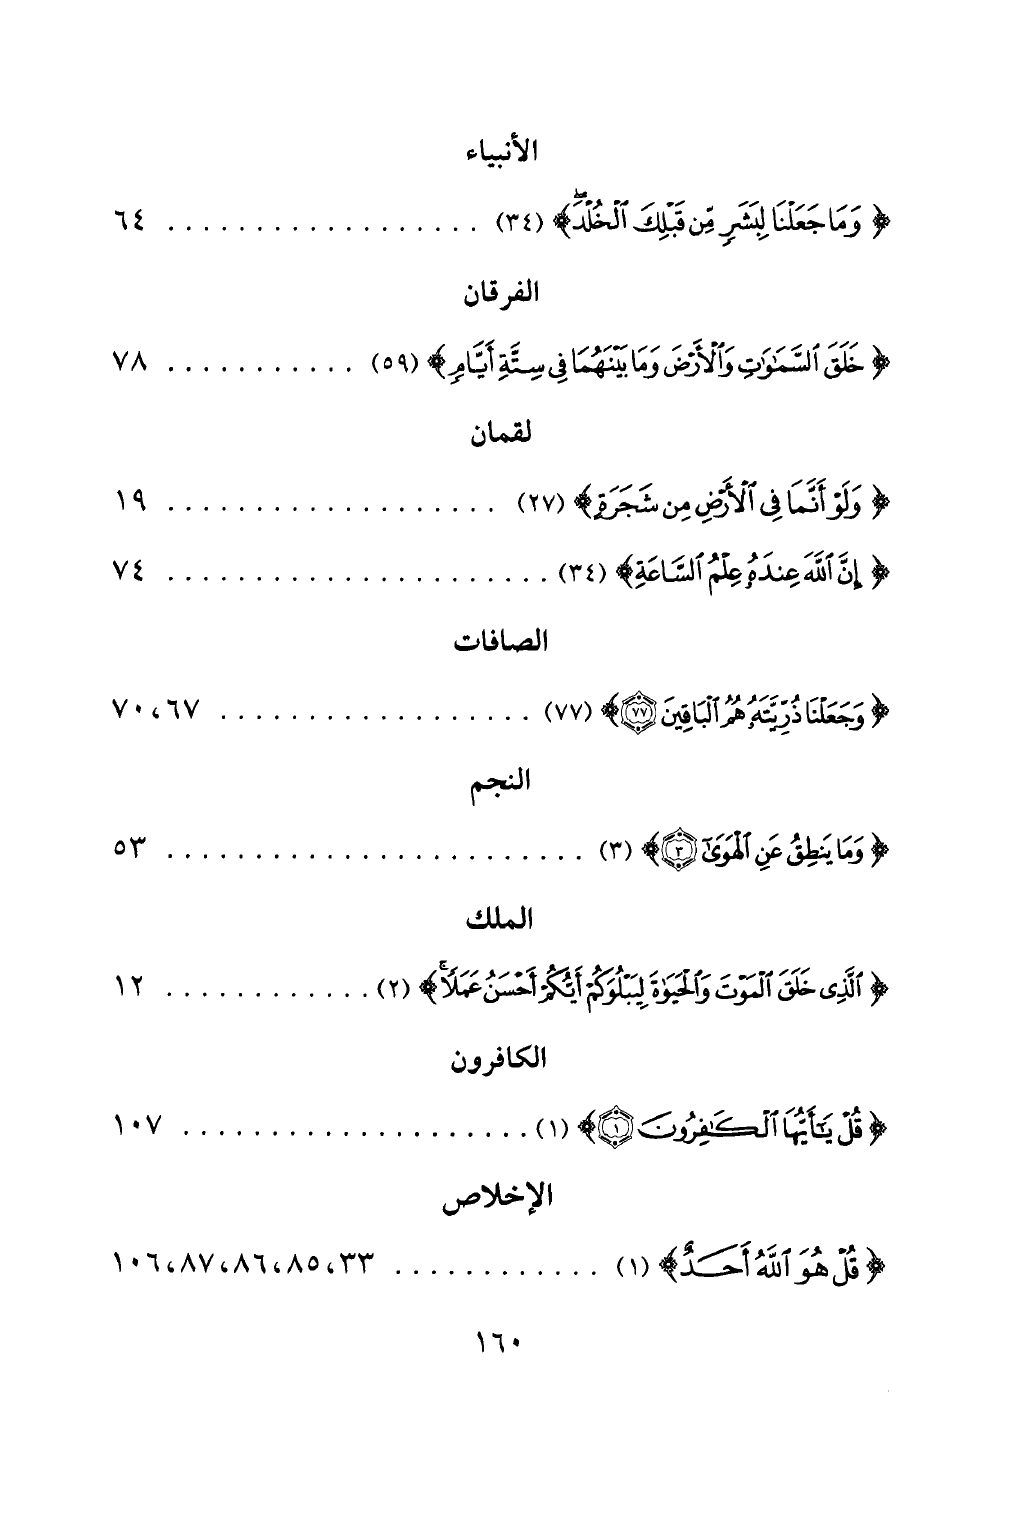 الأنبياء
﴿ وَمَا جَعَلْنَا لِبَشَرٍ مِّن قَبْلِكَ ٱلْخُلْدَۖ ﴾ (٣٤) . . . . . . . . . . . . . . . . . . ٦٤
الفرقان
﴿ خَلَقَ ٱلسَّمَٰوَٰتِ وَٱلْأَرْضَ وَمَا بَيْنَهُمَا فِى سِتَّةِ أَيَّامٍ ﴾ (٥٩) . . . . . . . . . . . ٧٨
لقمان
﴿ وَلَوْ أَنَّمَا فِى ٱلْأَرْضِ مِن شَجَرَةٍ ﴾ (٢٧) . . . . . . . . . . . . . . . . . . . ١٩
﴿ إِنَّ ٱللَّهَ عِندَهُۥ عِلْمُ ٱلسَّاعَةِ ﴾ (٣٤) . . . . . . . . . . . . . . . . . . . . . . ٧٤
الصافات
﴿ وَجَعَلْنَا ذُرِّيَّتَهُۥ هُمُ ٱلْبَاقِينَ ٧٧ ﴾ (٧٧) . . . . . . . . . . . . . . . . . . ٦٧، ٧٠
النجم
﴿ وَمَا يَنطِقُ عَنِ ٱلْهَوَىٰٓ ٣ ﴾ (٣) . . . . . . . . . . . . . . . . . . . . . . . . ٥٣
الملك
﴿ ٱلَّذِى خَلَقَ ٱلْمَوْتَ وَٱلْحَيَوٰةَ لِيَبْلُوَكُمْ أَيُّكُمْ أَحْسَنُ عَمَلًاۚ ﴾ (٢) . . . . . . . . . . . . ١٢
الكافرون
﴿ قُلْ يَٰٓأَيُّهَا ٱلْكَٰفِرُونَ ١ ﴾ (١) . . . . . . . . . . . . . . . . . . . . ١٠٧
الإخلاص
﴿ قُلْ هُوَ ٱللَّهُ أَحَدٌ ﴾ (١) . . . . . . . . . . . . ٣٣، ٨٥، ٨٦، ٨٧، ١٠٦
١٦٠